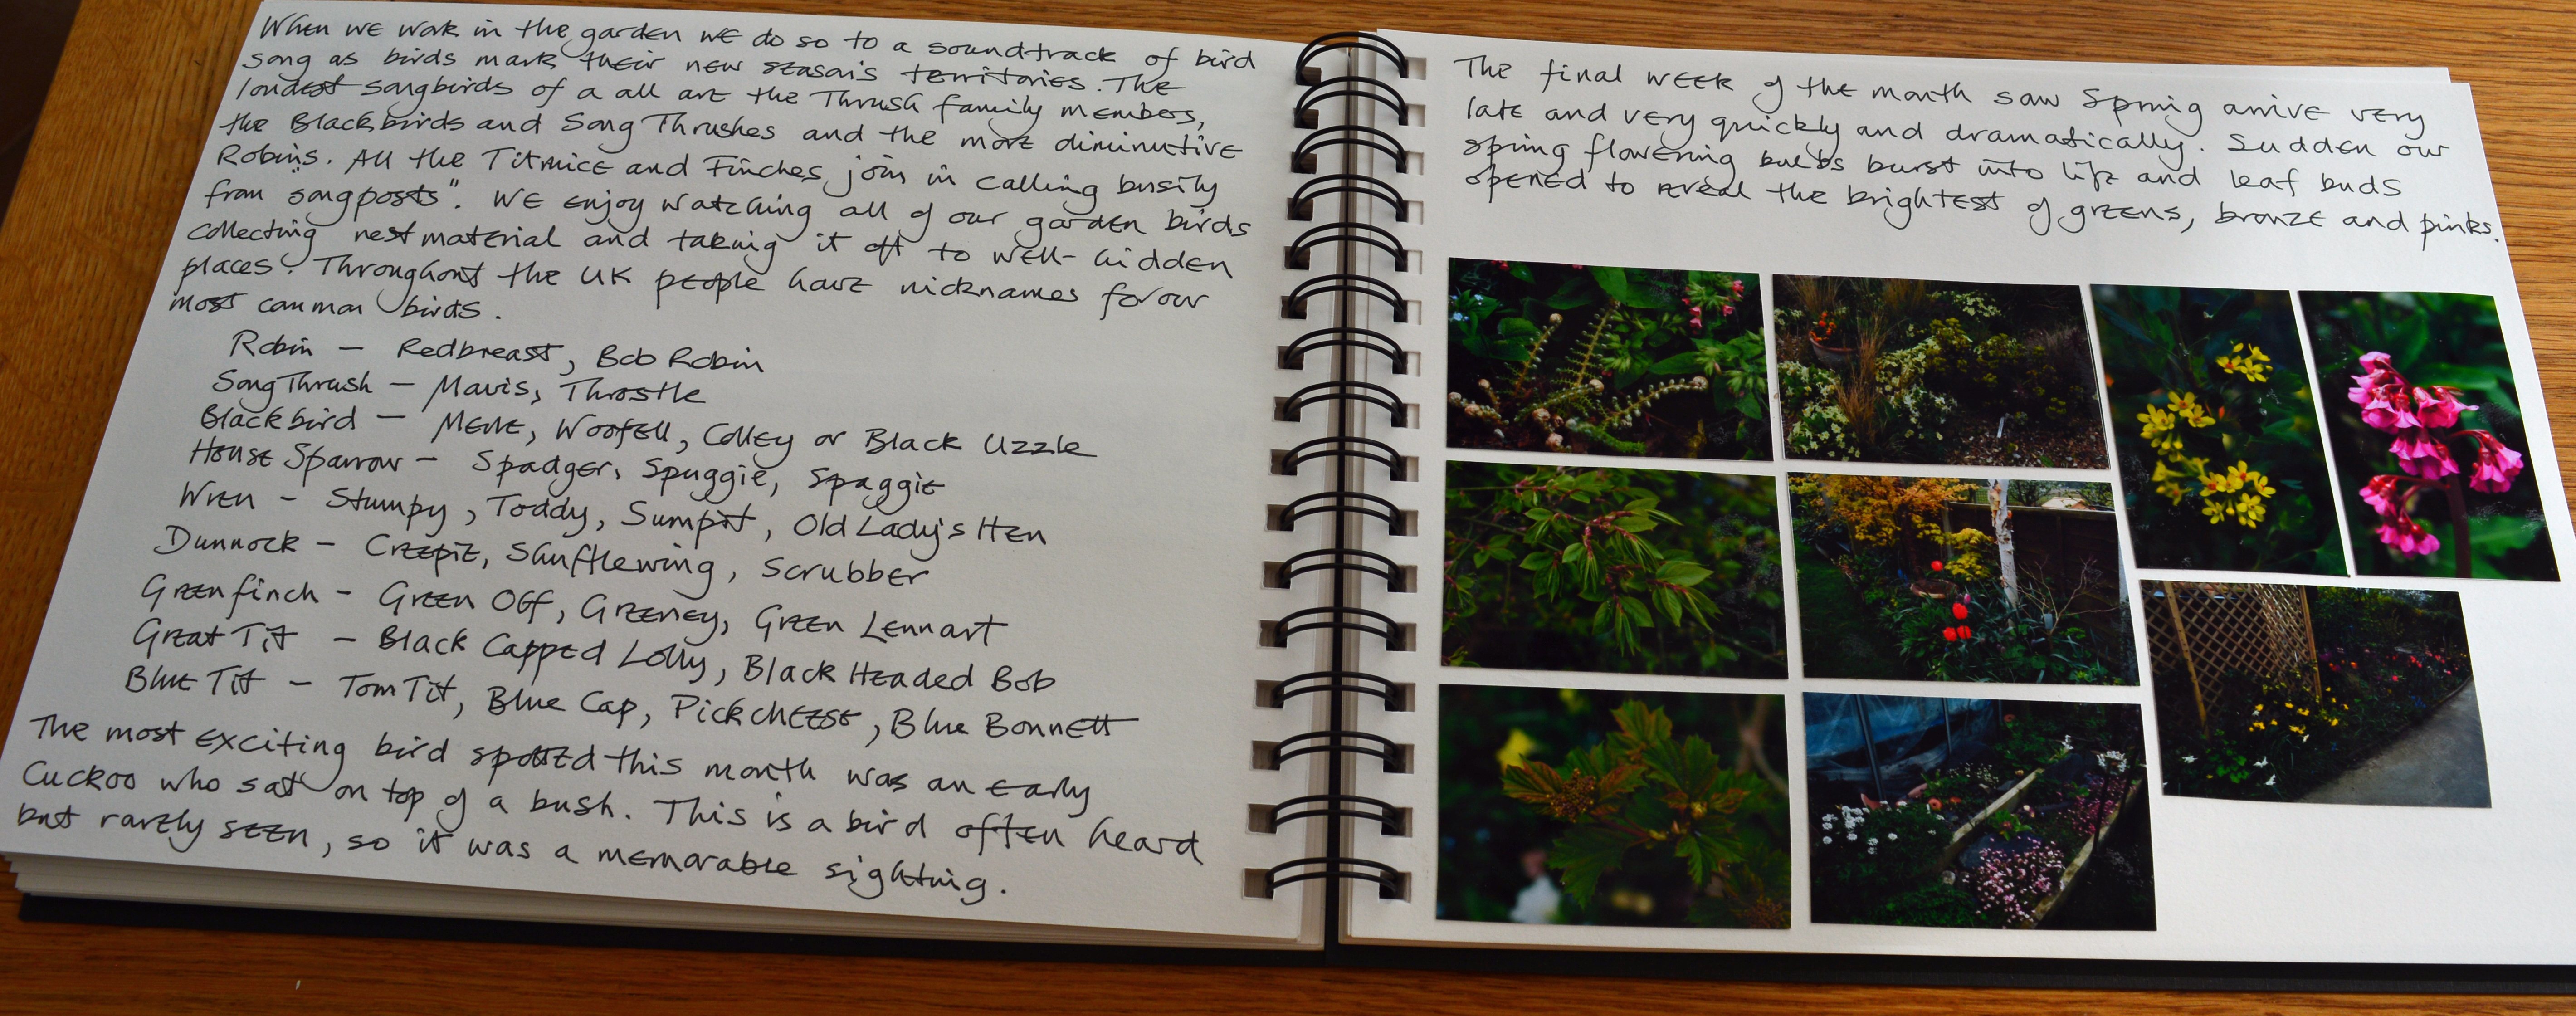 When we work in the garden we do so to a soundtrack of bird
song as birds mark their new season's territories. The
loudest songbirds of a all are the Thrush family members,
the Blackbirds and Song Thrushes and the more diminutive
Robins. All the Titmice and Finches join in calling busily
from "songposts". We enjoy watching all of our garden birds
collecting nest material and taking it off to well-hidden
places. Throughout the UK people have nicknames for our
most common birds.
Robin - Redbreast, Bob Robin
Song Thrush - Mavis, Throstle
Blackbird - Merle, Woofell, Colley or Black Uzzle
House Sparrow - Spadger, Spuggie, Spaggie
Wren - Stumpy, Toddy, Sumpit, Old Lady's Hen
Dunnock - Creepie, Shufflewing, Scrubber
Greenfinch - Green Olf, Greeney, Green Lennart
Great Tit - Black Capped Lolly, Black Headed Bob
Blue Tit - Tom Tit, Blue Cap, Pickcheese, Blue Bonnett
The most exciting bird spotted this month was an early
Cuckoo who sat on top of a bush. This is a bird often heard
but rarely seen, so it was a memorable sighting.
The final week of the month saw Spring arrive very
late and very quickly and dramatically. Sudden our
spring flowering bulbs burst into life and leaf buds
opened to reveal the brightest of greens, bronze and pinks.